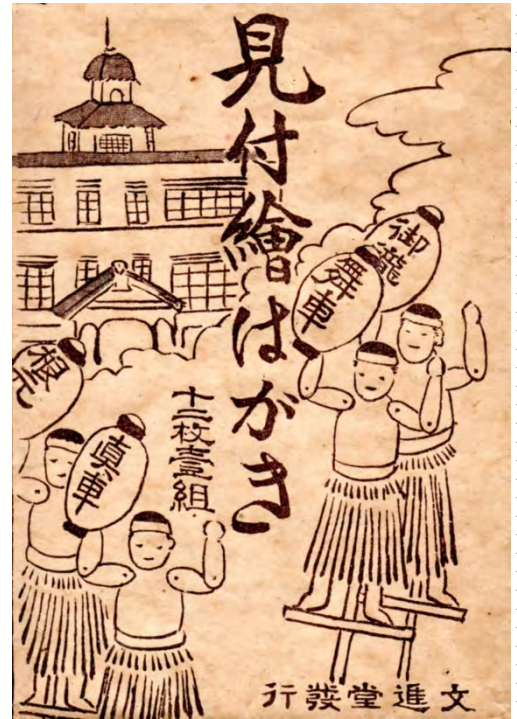 見付繪はがき
十二枚壹組
御瀧
舞車
根元
眞車
文進堂發行